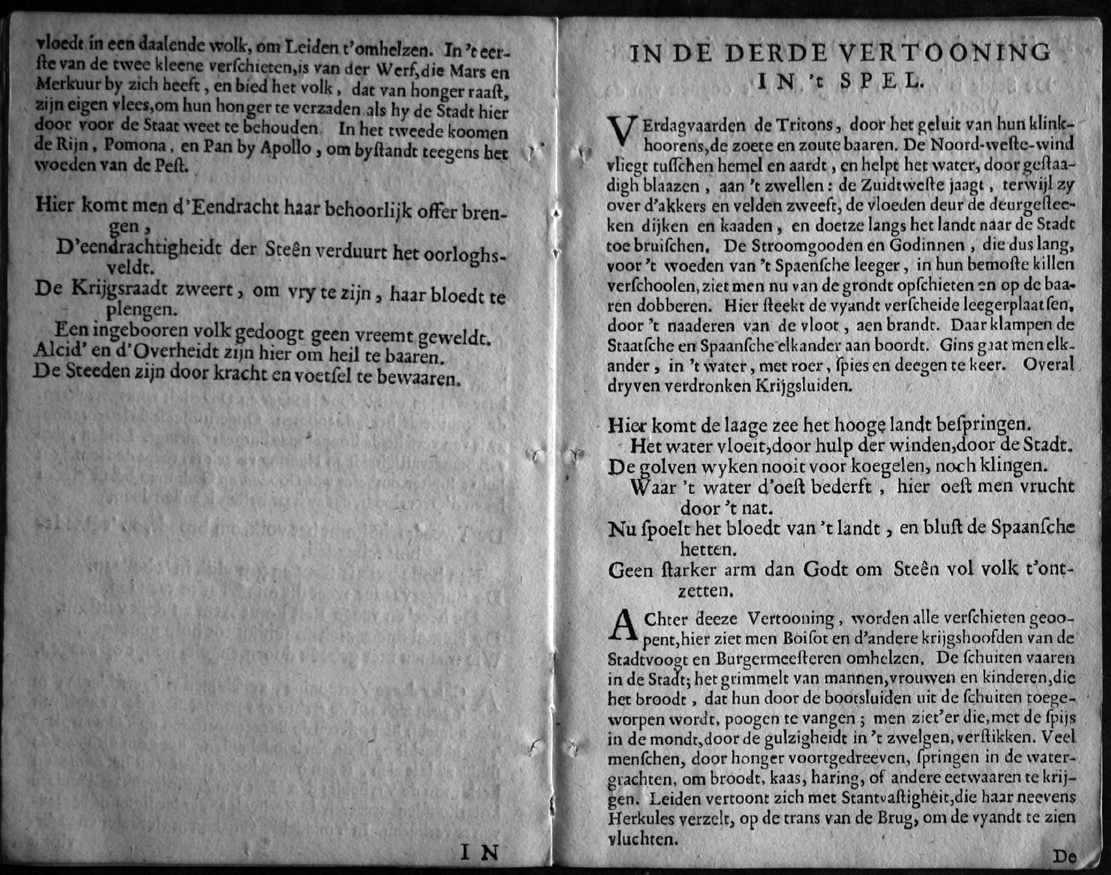 vloedt in een daalende wolk, om Leiden t'omhelzen. In 't eer-
ſte van de twee kleene verſchieten, is van der Werf, die Mars en
Merkuur by zich heeft, en bied het volk, dat van honger raaſt,
zijn eigen vlees, om hun honger te verzaden als hy de Stadt hier
door voor de Staat weet te behouden. In het tweede koomen
de Rijn, Pomona, en Pan by Apollo, om byſtandt teegens het
woeden van de Peſt.
Hier komt men d'Eendracht haar behoorlijk offer bren-
gen,
D'eendrachtigheidt der Steên verduurt het oorloghs-
veldt.
De Krijgsraadt zweert, om vry te zijn, haar bloedt te
plengen.
Een ingebooren volk gedoogt geen vreemt geweldt.
Alcid' en d'Overheidt zijn hier om heil te baaren.
De Steeden zijn door kracht en voetſel te bewaaren.
I N
IN DE DERDE VERTOONING
IN 't SPEL.
VErdagvaarden de Tritons, door het geluit van hun klink-
hoorens, de zoete en zoute baaren. De Noord-weſte-wind
vliegt tuſſchen hemel en aardt, en helpt het water, door geſtaa-
digh blaazen, aan 't zwellen: de Zuidtweſte jaagt, terwijl zy
over d'akkers en velden zweeft, de vloeden deur de deurgeſtee-
ken dijken en kaaden, en doetze langs het landt naar de Stadt
toe bruiſchen. De Stroomgooden en Godinnen, die dus lang,
voor 't woeden van 't Spaenſche leeger, in hun bemoſte killen
verſchoolen, ziet men nu van de grondt opſchieten en op de baa-
ren dobberen. Hier ſteekt de vyandt verſcheide leegerplaatſen,
door 't naaderen van de vloot, aen brandt. Daar klampen de
Staatſche en Spaanſche elkander aan boordt. Gins gaat men elk-
ander, in 't water, met roer, ſpies en deegen te keer. Overal
dryven verdronken Krijgsluiden.
Hier komt de laage zee het hooge landt beſpringen.
Het water vloeit, door hulp der winden, door de Stadt.
De golven wyken nooit voor koegelen, noch klingen.
Waar 't water d'oeſt bederft, hier oeſt men vrucht
door 't nat.
Nu ſpoelt het bloedt van 't landt, en bluſt de Spaanſche
hetten.
Geen ſtarker arm dan Godt om Steên vol volk t'ont-
zetten.
AChter deeze Vertooning, worden alle verſchieten geoo-
pent, hier ziet men Boiſot en d'andere krijgshoofden van de
Stadtvoogt en Burgermeeſteren omhelzen. De ſchuiten vaaren
in de Stadt; het grimmelt van mannen, vrouwen en kinderen, die
het broodt, dat hun door de bootsluiden uit de ſchuiten toege-
worpen wordt, poogen te vangen; men ziet'er die, met de ſpijs
in de mondt, door de gulzigheidt in 't zwelgen, verſtikken. Veel
menſchen, door honger voortgedreeven, ſpringen in de water-
grachten, om broodt, kaas, haring, of andere eetwaaren te krij-
gen. Leiden vertoont zich met Stantvaſtigheit, die haar neevens
Herkules verzelt, op de trans van de Brug, om de vyandt te zien
vluchten.
De